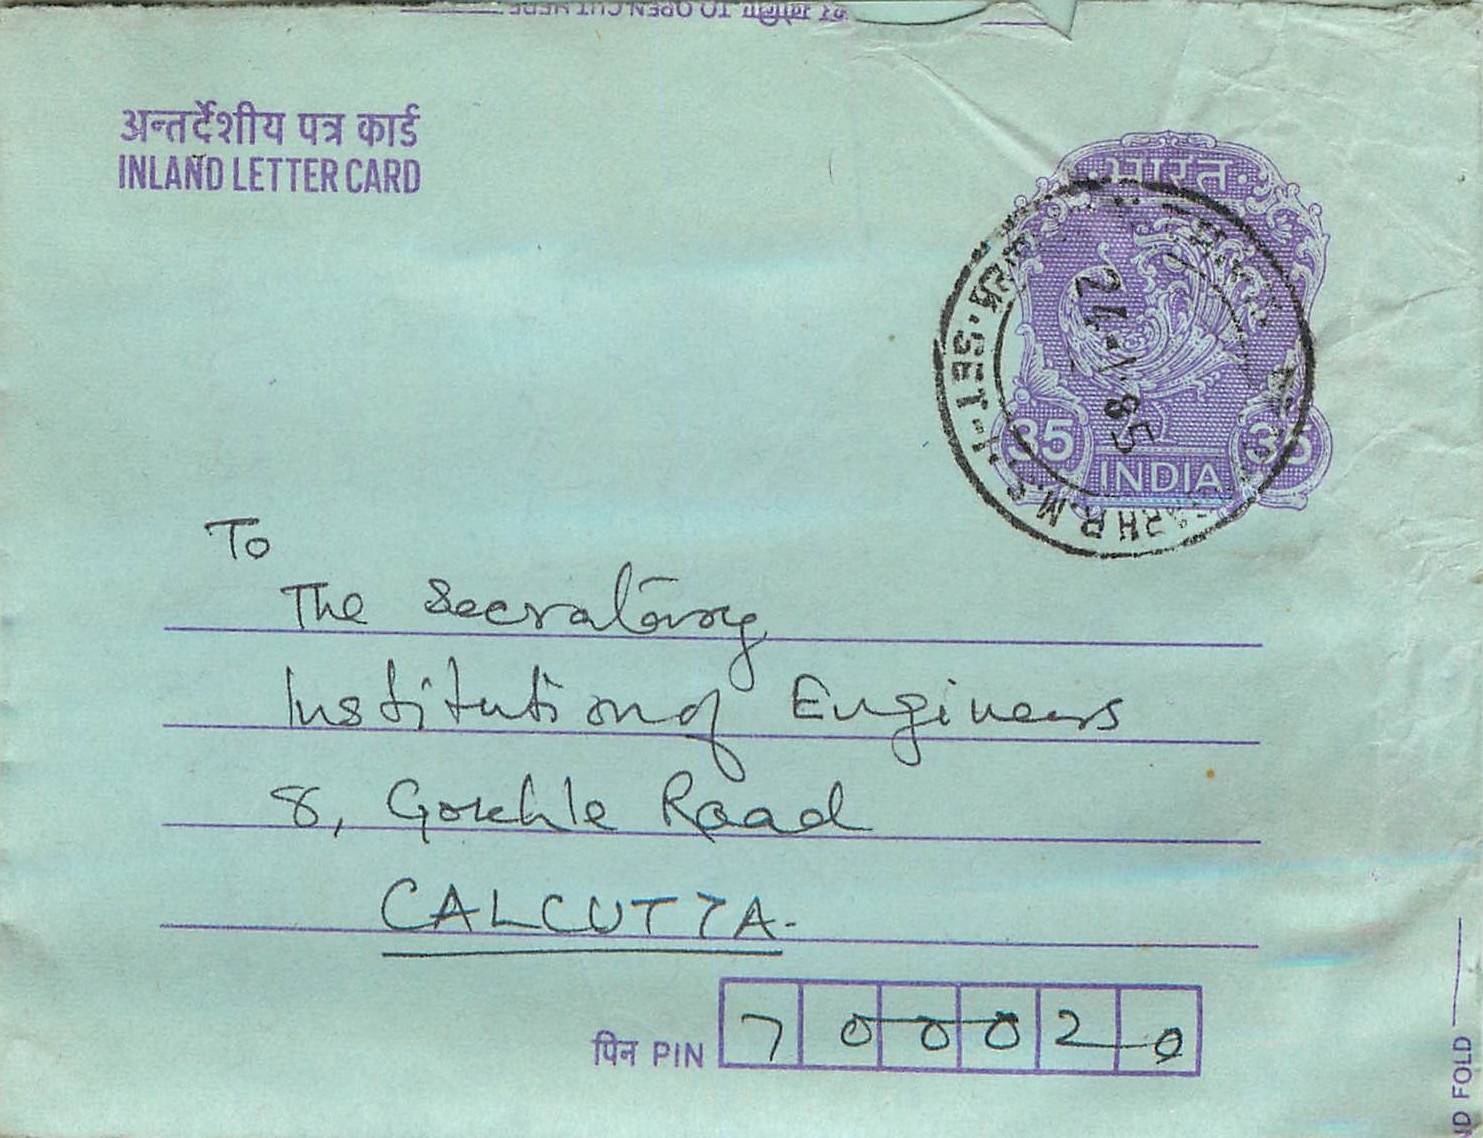 TO OPEN CUT HERE
अन्तर्देशीय पत्र कार्ड
INLAND LETTER CARD
भारत
24-1-85
SET-1
R.M.S.
35 35
INDIA
To
The Secratary
Institution of Engineers
8, Gokhle Road
CALCUTTA.
पिन PIN 700020
FOLD